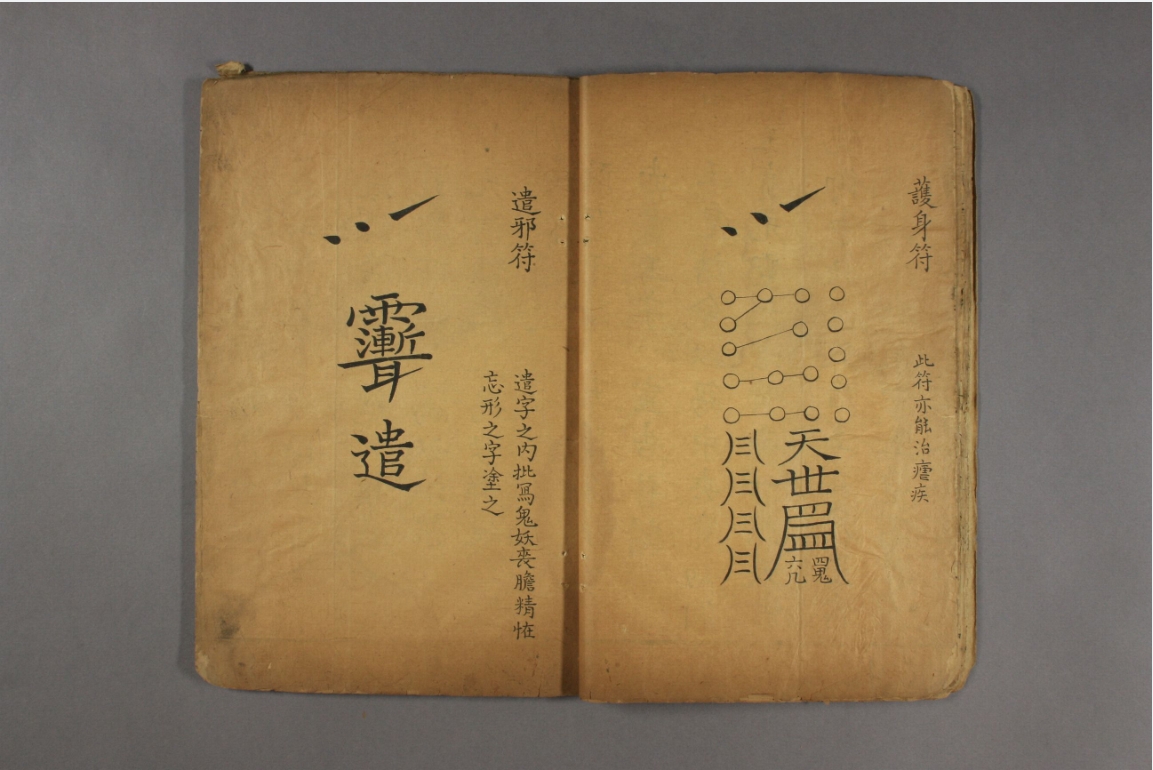 護身符
此符亦能治瘧疾
天
世
四鬼
六几
遣邪符
遣字之内批寫鬼妖喪膽精怪
忘形之字塗之
遣